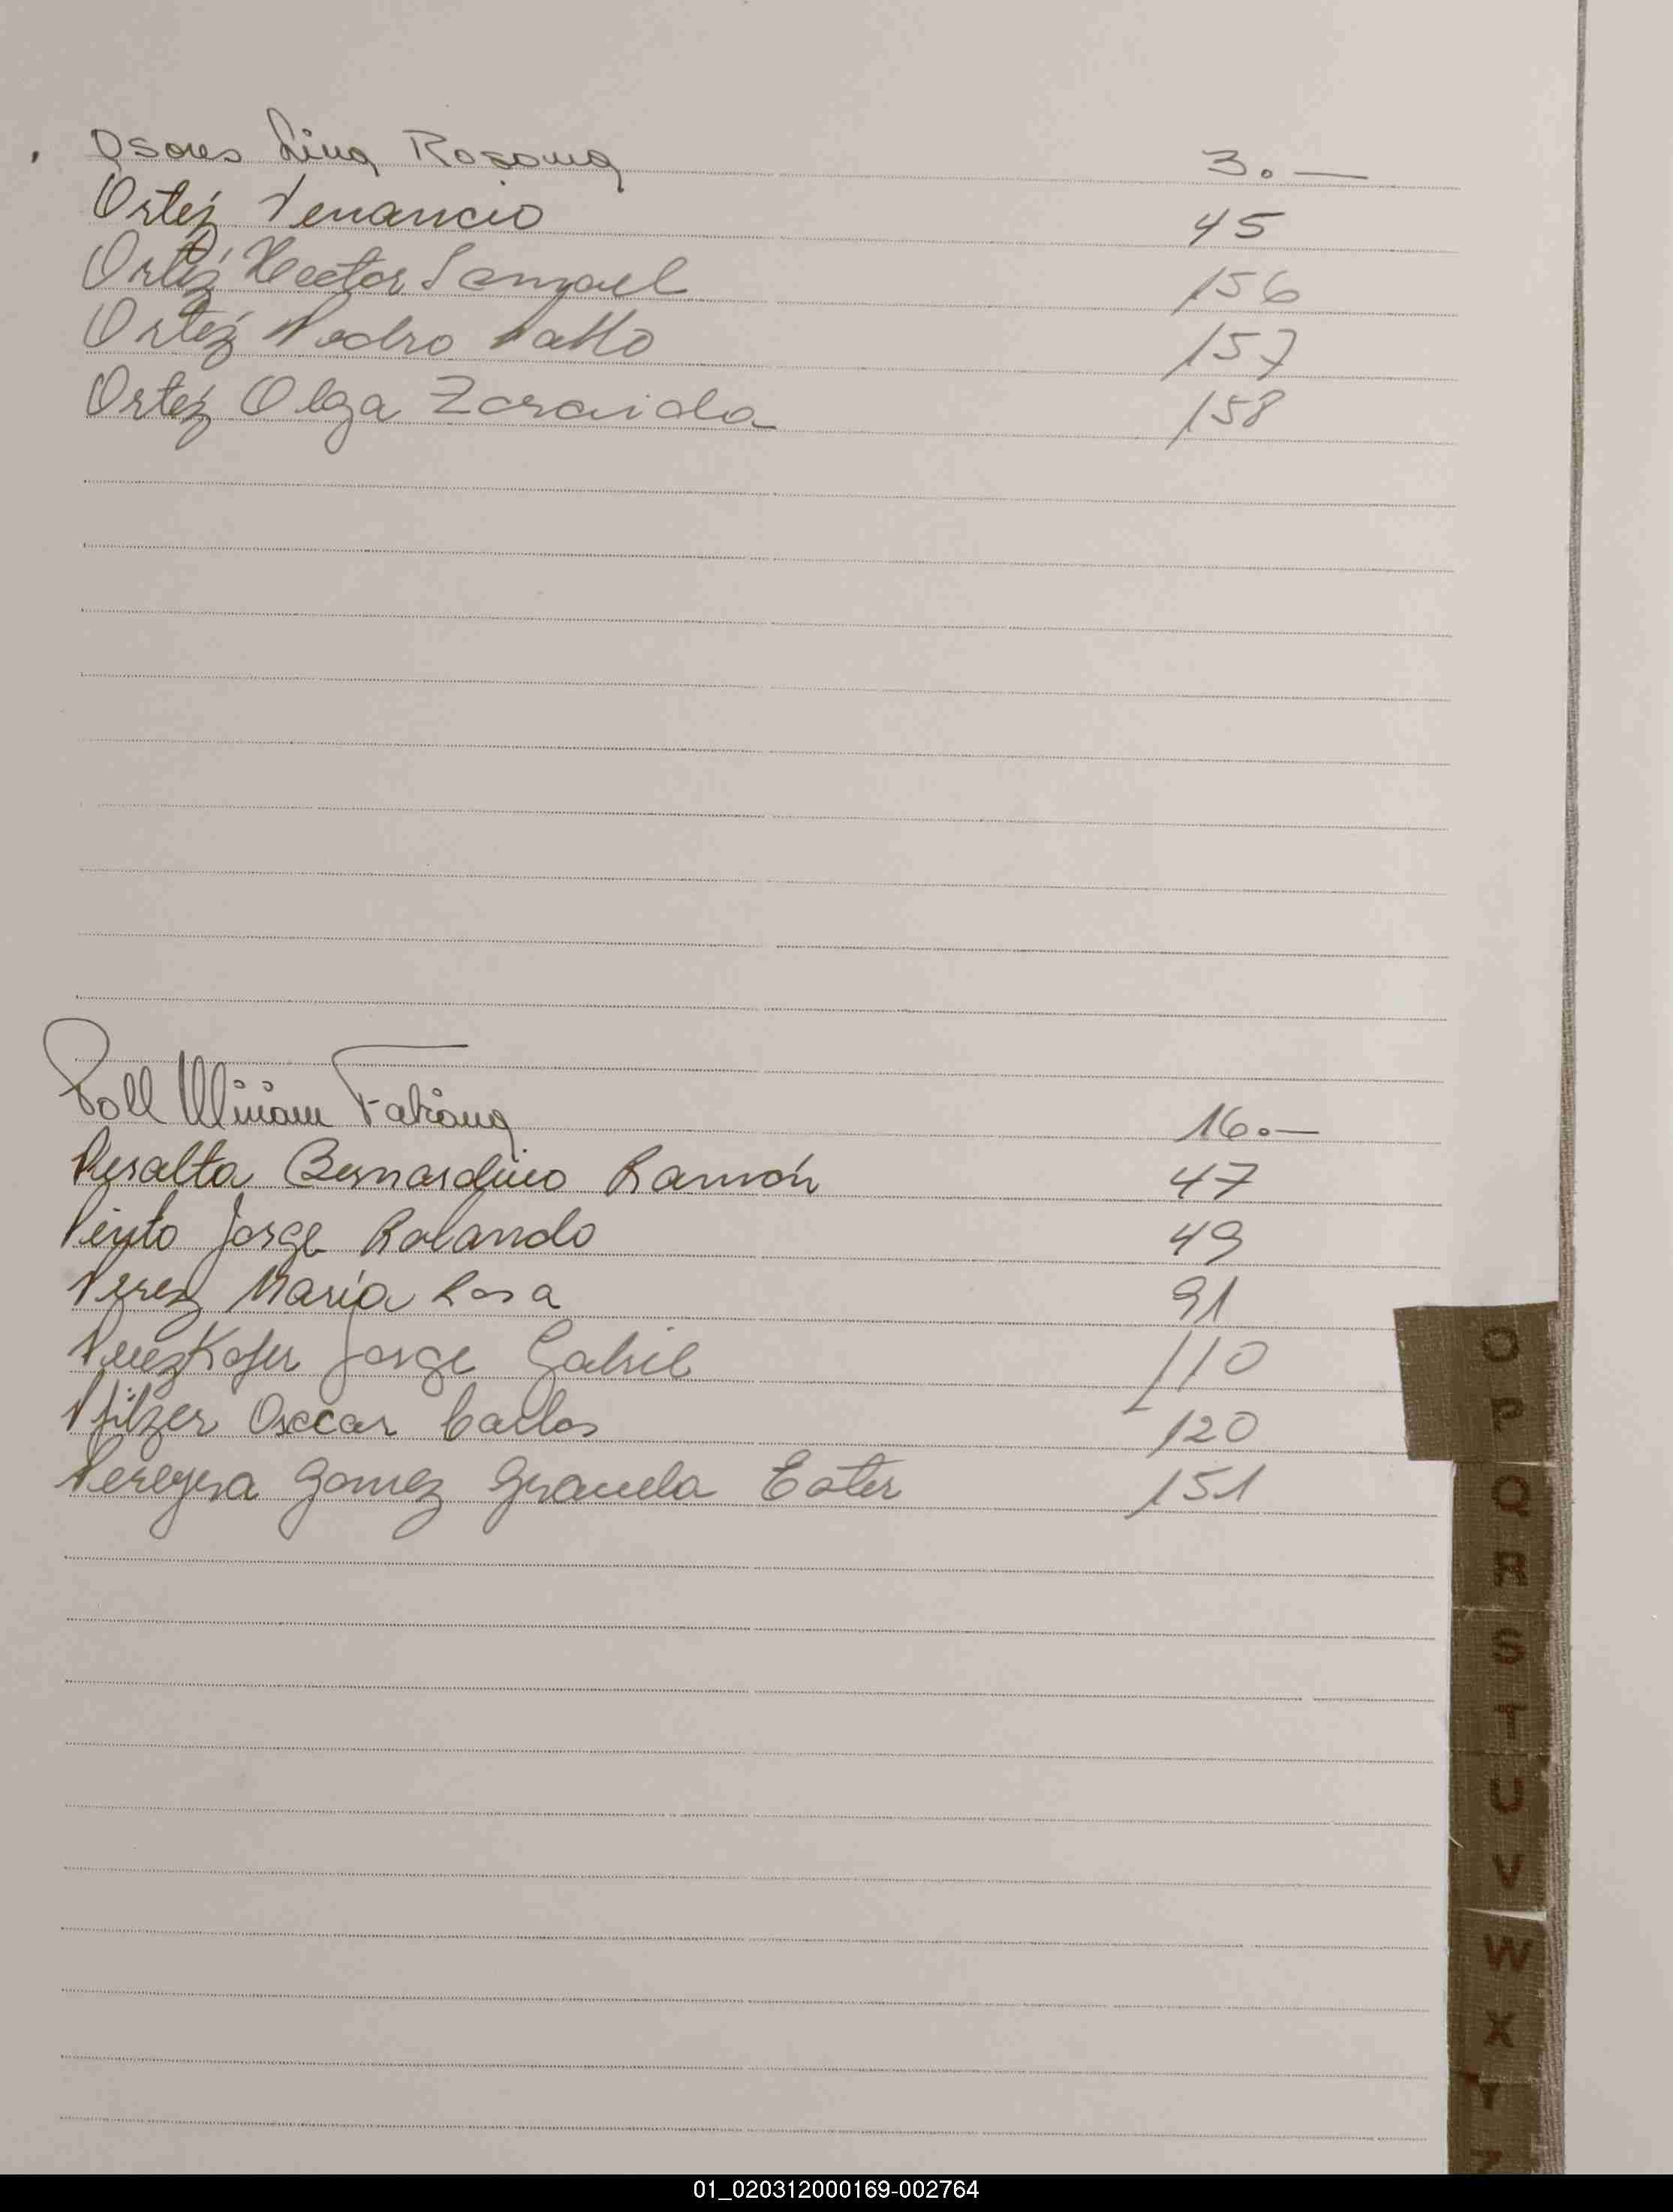 Osores Lina Rosana 3.—
Ortíz Venancio 45
Ortíz Hector Samuel 156
Ortíz Pedro Pablo 157
Ortíz Olga Zoraida 158
Poll Miriam Fabiana 16.—
Peralta Bernardino Ramón 47
Pinto Jorge Rolando 49
Perez María Rosa 91
Jorge Gabriel 110
Pfilzer Osccar Carlos 120
Pereyra Gomez Graciela Ester 151
O
P
Q
R
S
T
U
V
W
X
Y
Z
01_020312000169-002764